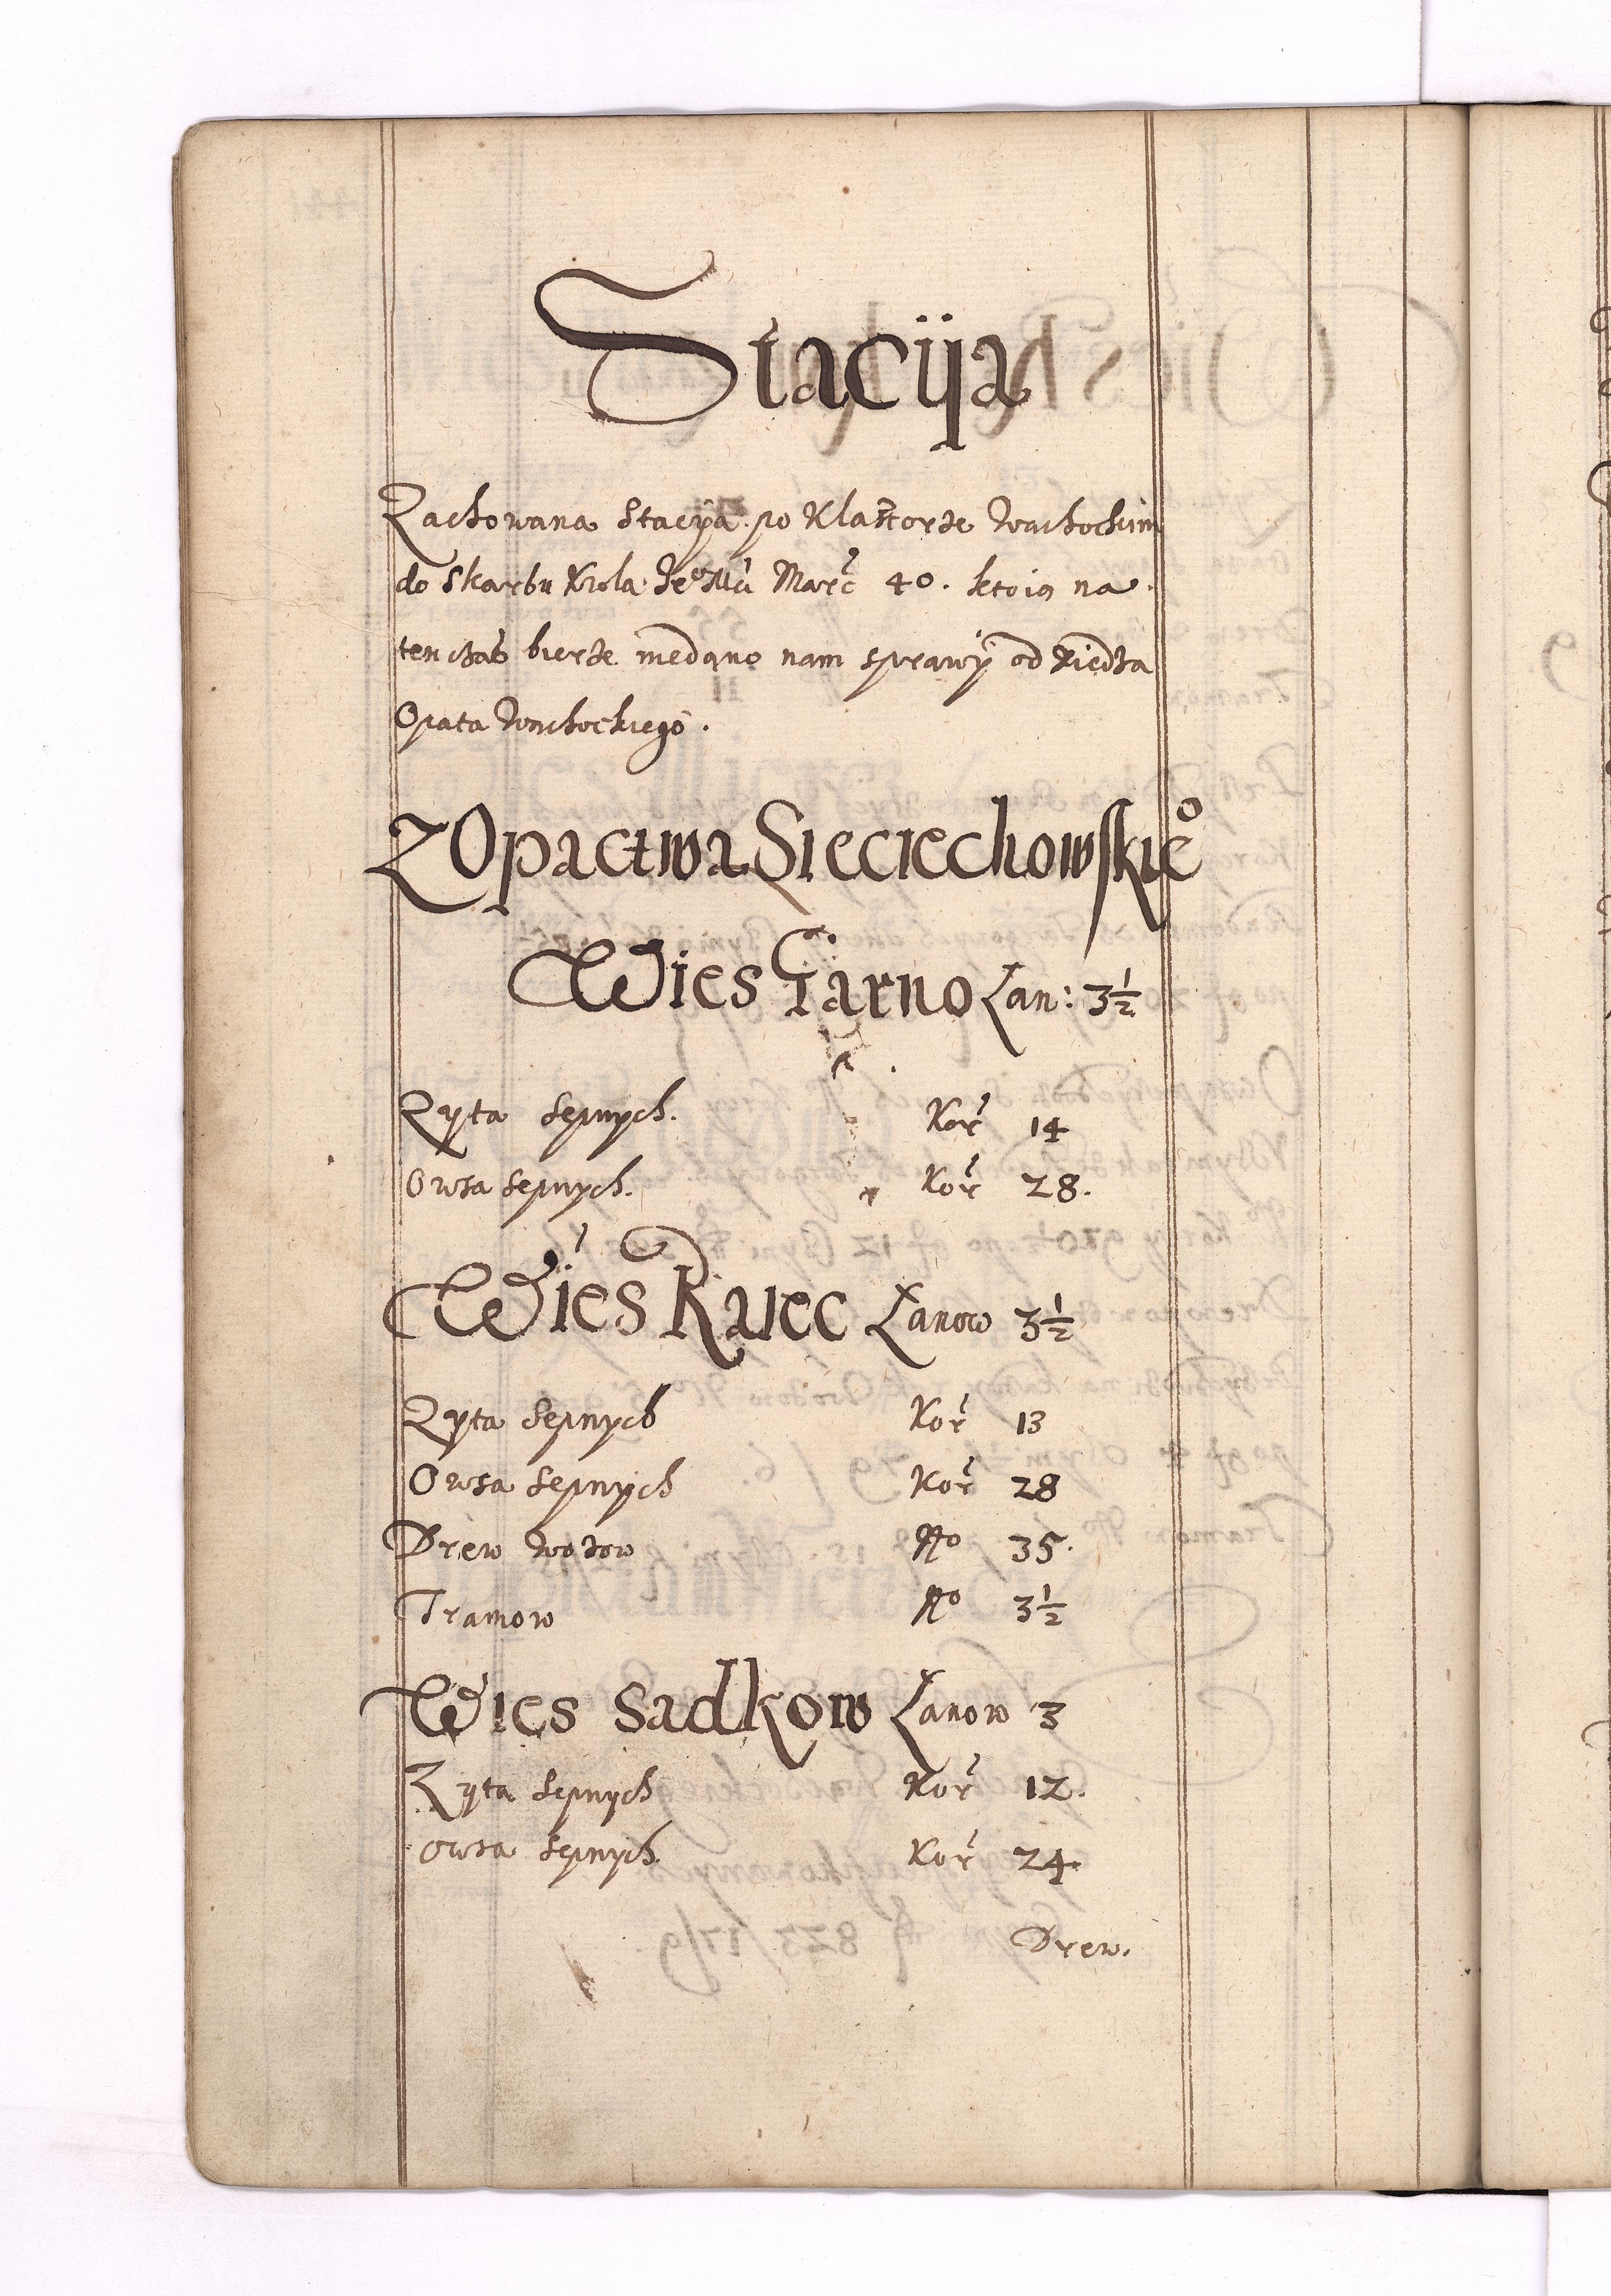 Stacÿa
Zachowana Stacÿa po Klasztorze Wonchockim
do Skarbu Krola Je° Mći Marc 40. ktoia na
tenczas bierze niedano nam sprawÿ od Xiedza
Opata Wonchockiego.
Z Opactwa Sieciechowskie°
Wies Garno Łan: 3½
Zyta sepnych. Kor 14
Owsa sepnych. Kor 28.
Wies Raiec Łanow 3½
Zyta sepnych Kor 13
Owsa sepnych Kor 28
Drew wozow N° 35.
Tramow N° 3½
Wies Sadkow Łanow 3
Zyta sepnych Kor 12.
Owsa sepnych Kor 24.
Drew.